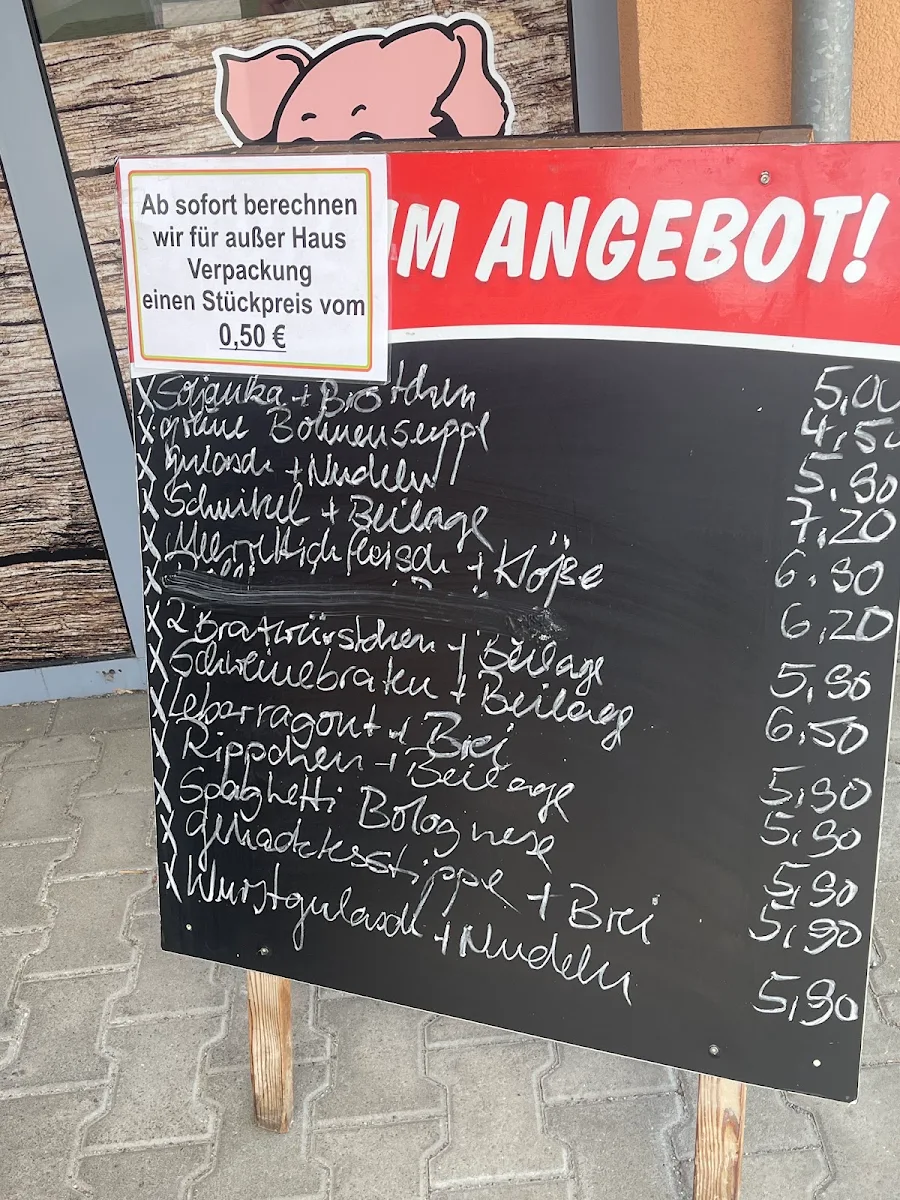 Ab sofort berechnen
wir für außer Haus
Verpackung
einen Stückpreis vom
0,50 €
IM ANGEBOT!
x Soljanka + Brötchen 5,00
x grüne Bohnensuppe 4,50
x Gulasch + Nudeln 5,90
x Schnitzel + Beilage 7,20
x Meerrettichfleisch + Klöße 6,90
x 6,20
x 2 Bratwürstchen + Beilage 5,90
x Schweinebraten + Beilage 6,50
x Leberragout + Brei 5,90
x Rippchen + Beilage 5,90
x Spaghetti Bolognese 5,90
x Gehacktesstippe + Brei 5,90
x Wurstgulasch + Nudeln 5,90